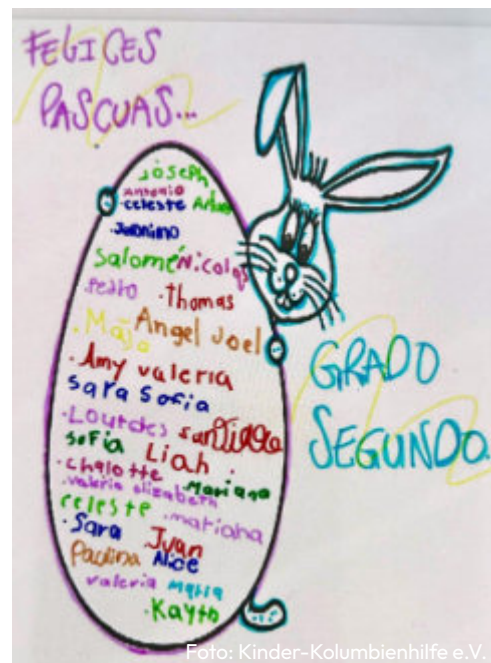 FELICES
PASCUAS...
Joseph
Antonio
celeste
Jeronimo
Salomé Nicolas
Pedro . Thomas
. Maja Angel Joel
. Amy valeria
Sara Sofia
. Lourdes santiago
Sofia Liah .
. Chalotte Mariana
. valeria elizabeth
celeste . mariana
. Sara Juan
Paulina Alice
valeria Maria
. Kayto
GRADO
SEGUNDO.
Foto: Kinder-Kolumbienhilfe e.V.